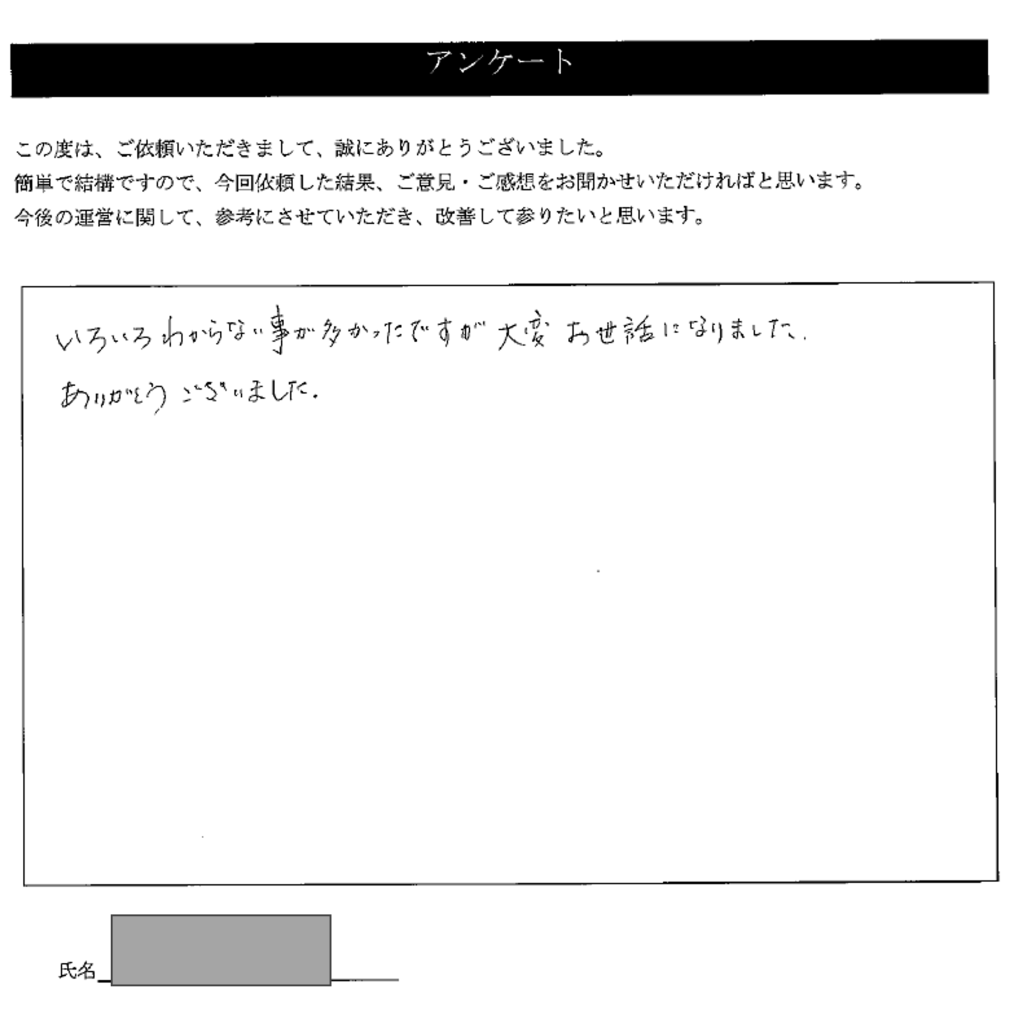 アンケート
この度は、ご依頼いただきまして、誠にありがとうございました。
簡単で結構ですので、今回依頼した結果、ご意見・ご感想をお聞かせいただければと思います。
今後の運営に関して、参考にさせていただき、改善して参りたいと思います。
いろいろわからない事が多かったですが 大変 お世話になりました.
ありがとう ございました.
氏名